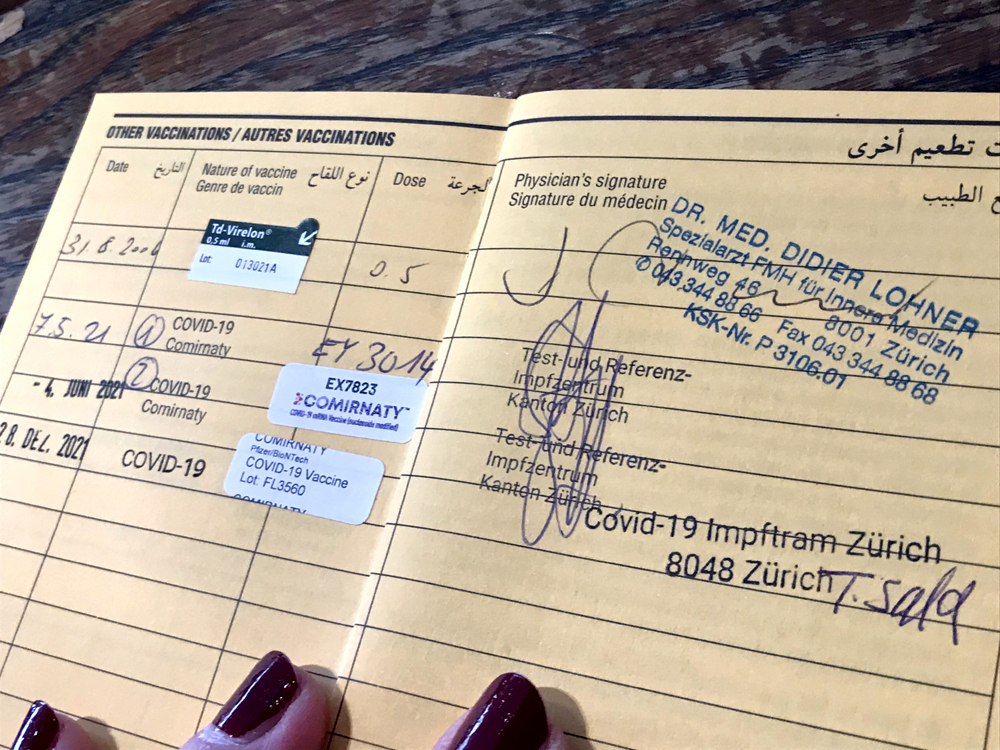 OTHER VACCINATIONS / AUTRES VACCINATIONS
تطعيم أخرى
Date التاريخ
Nature of vaccine نوع اللقاح
Genre de vaccin
Dose الجرعة
Physician's signature
Signature du médecin
الطبيب
31.8.200
Td-Virelon®
0,5 ml i.m.
Lot: 013021A
0.5
DR. MED. DIDIER LOHNER
Spezialarzt FMH für Innere Medizin
Rennweg 46 8001 Zürich
✆ 043 344 88 66 Fax 043 344 88 68
KSK-Nr. P 3106.01
7.5.21
1 COVID-19
Comirnaty
EY3014
Test- und Referenz-
Impfzentrum
Kanton Zürich
- 4. JUNI 2021
2 COVID-19
Comirnaty
EX7823
COMIRNATY™
COVID-19 mRNA Vaccine (nucleoside modified)
Test- und Referenz-
Impfzentrum
Kanton Zürich
28. DEZ. 2021
COVID-19
COMIRNATY
Pfizer/BioNTech
COVID-19 Vaccine
Lot: FL3560
COMIRNATY
Covid-19 Impftram Zürich
8048 Zürich